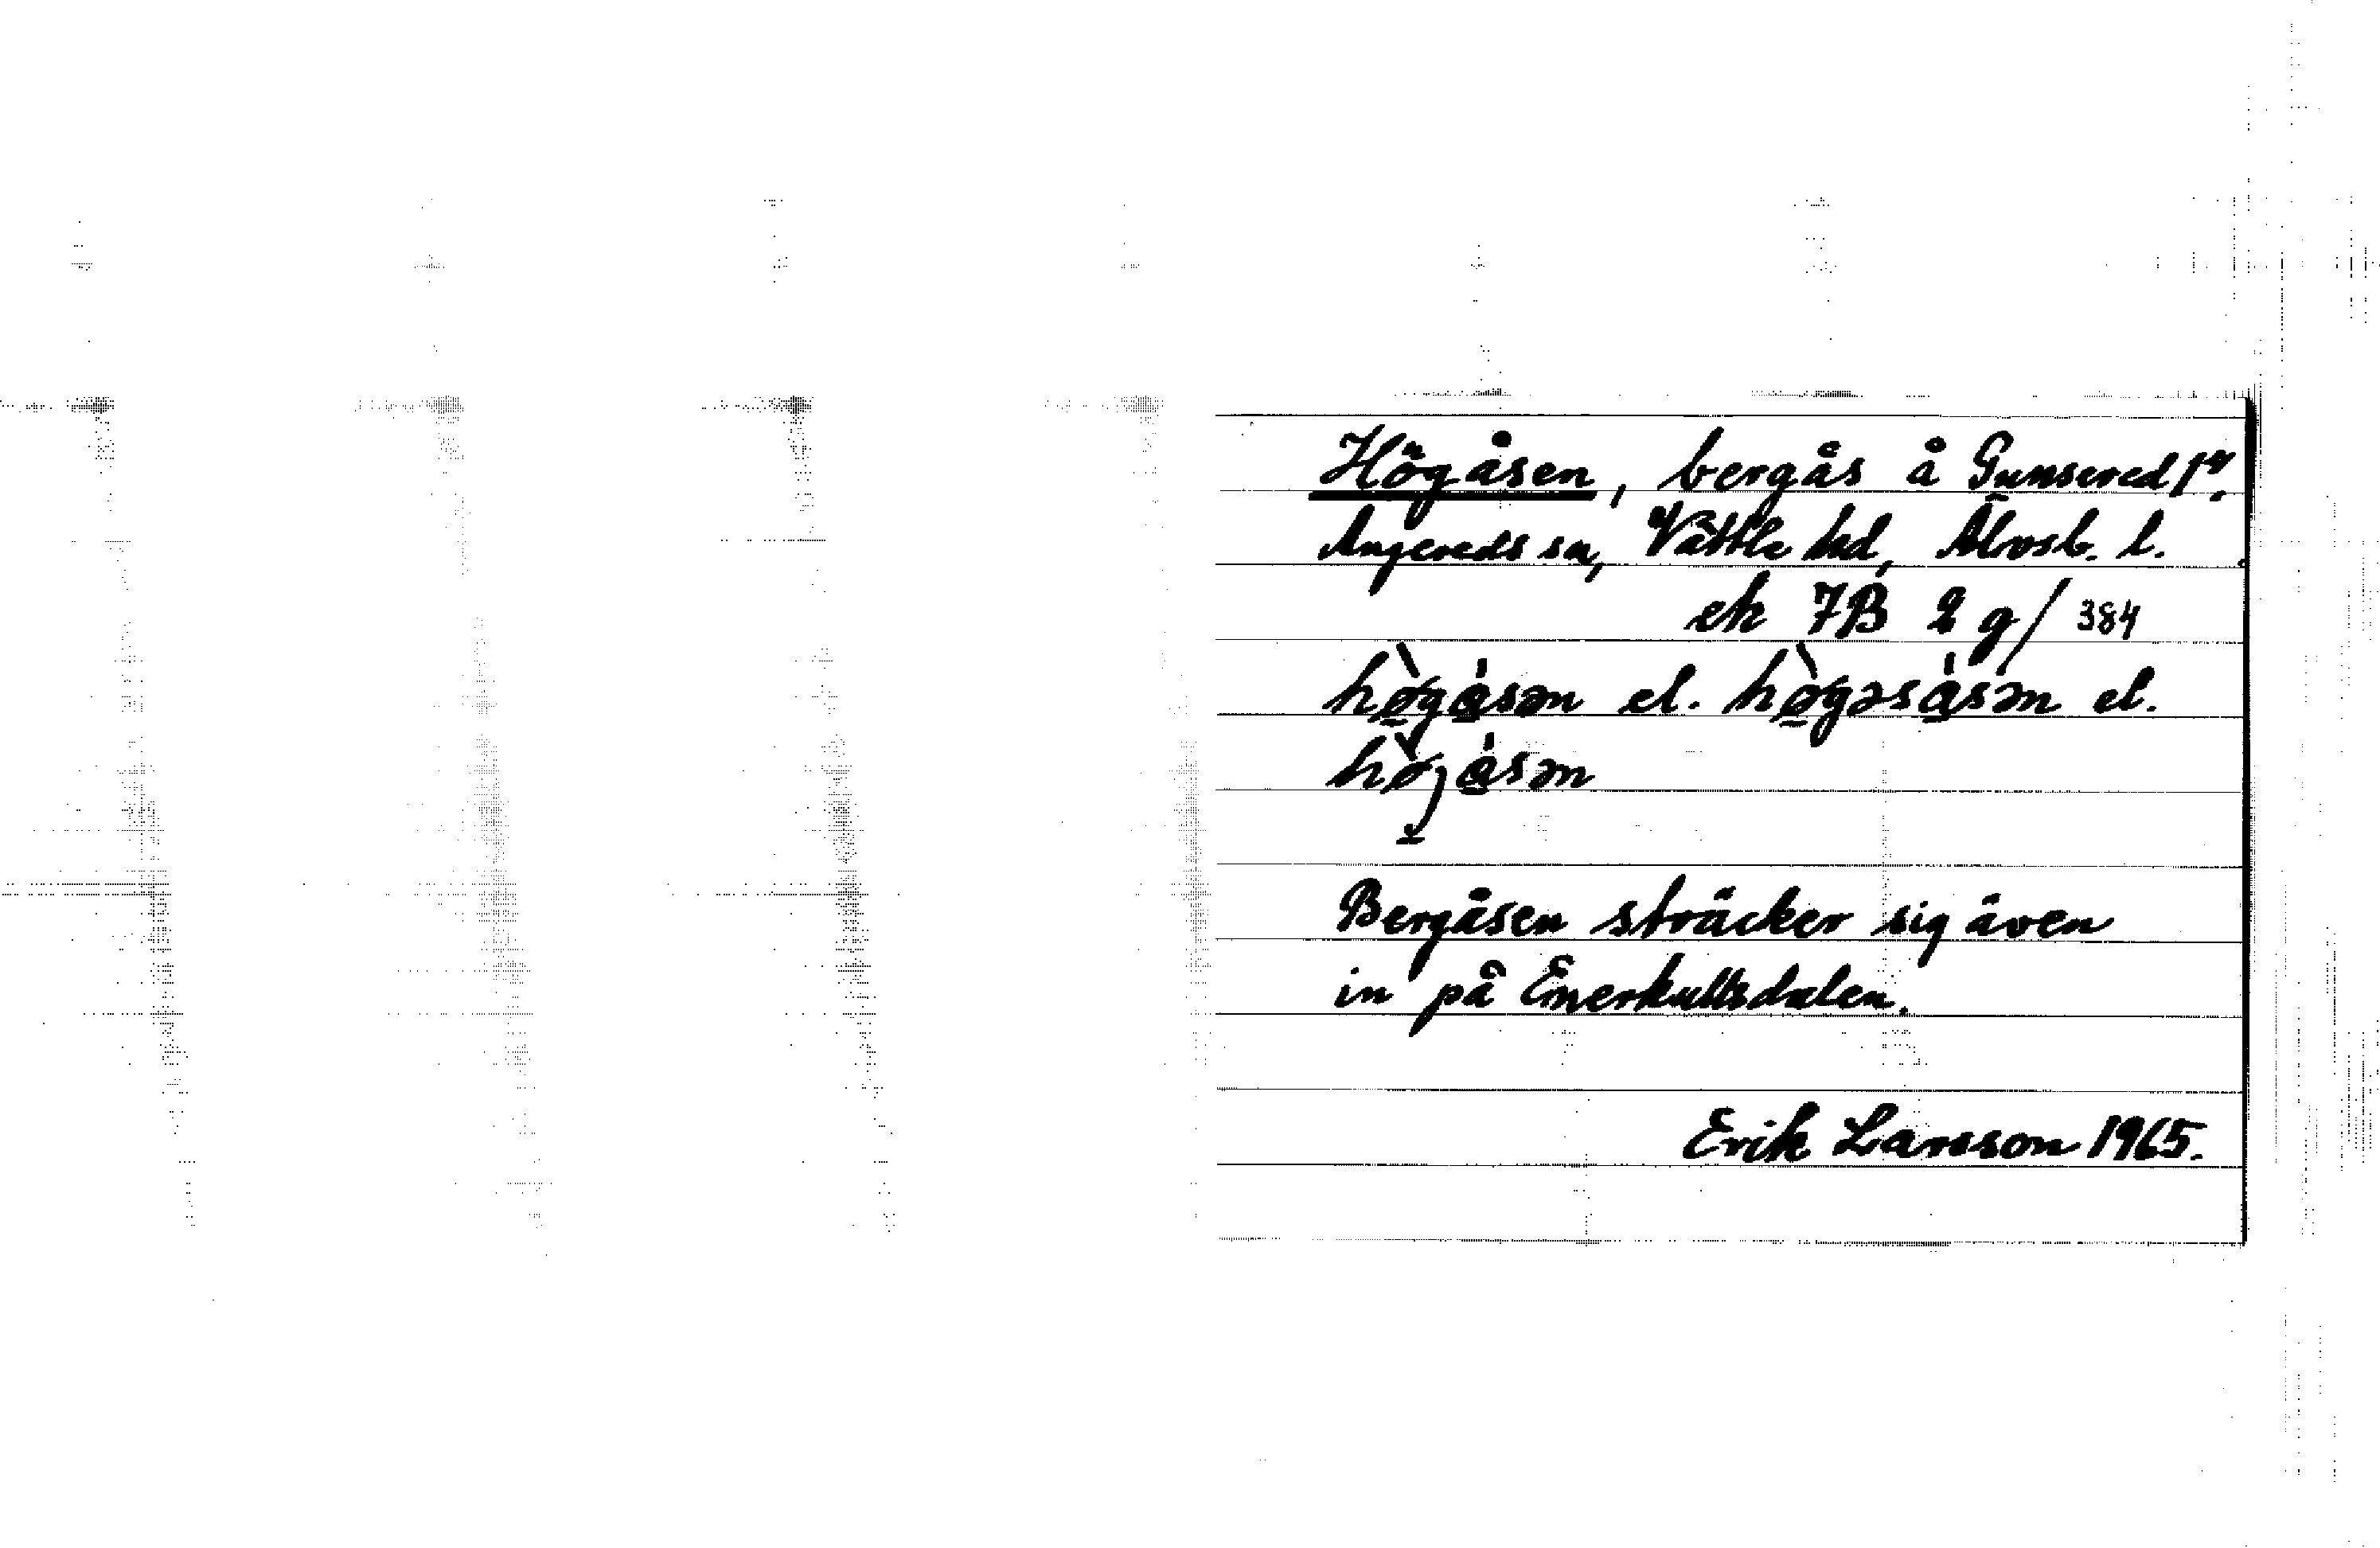 Högåsen, bergås å Gunsered 1⁴,
Angereds sn, Vättle hd, Älvsb. l.
ek 7B 2 g/384
hø̀gåsən el. hø̀gəsåsən el.
hø̀jåsən
Bergåsen sträcker sig även
in på Emerkullsdalen.
Erik Larsson 1965.